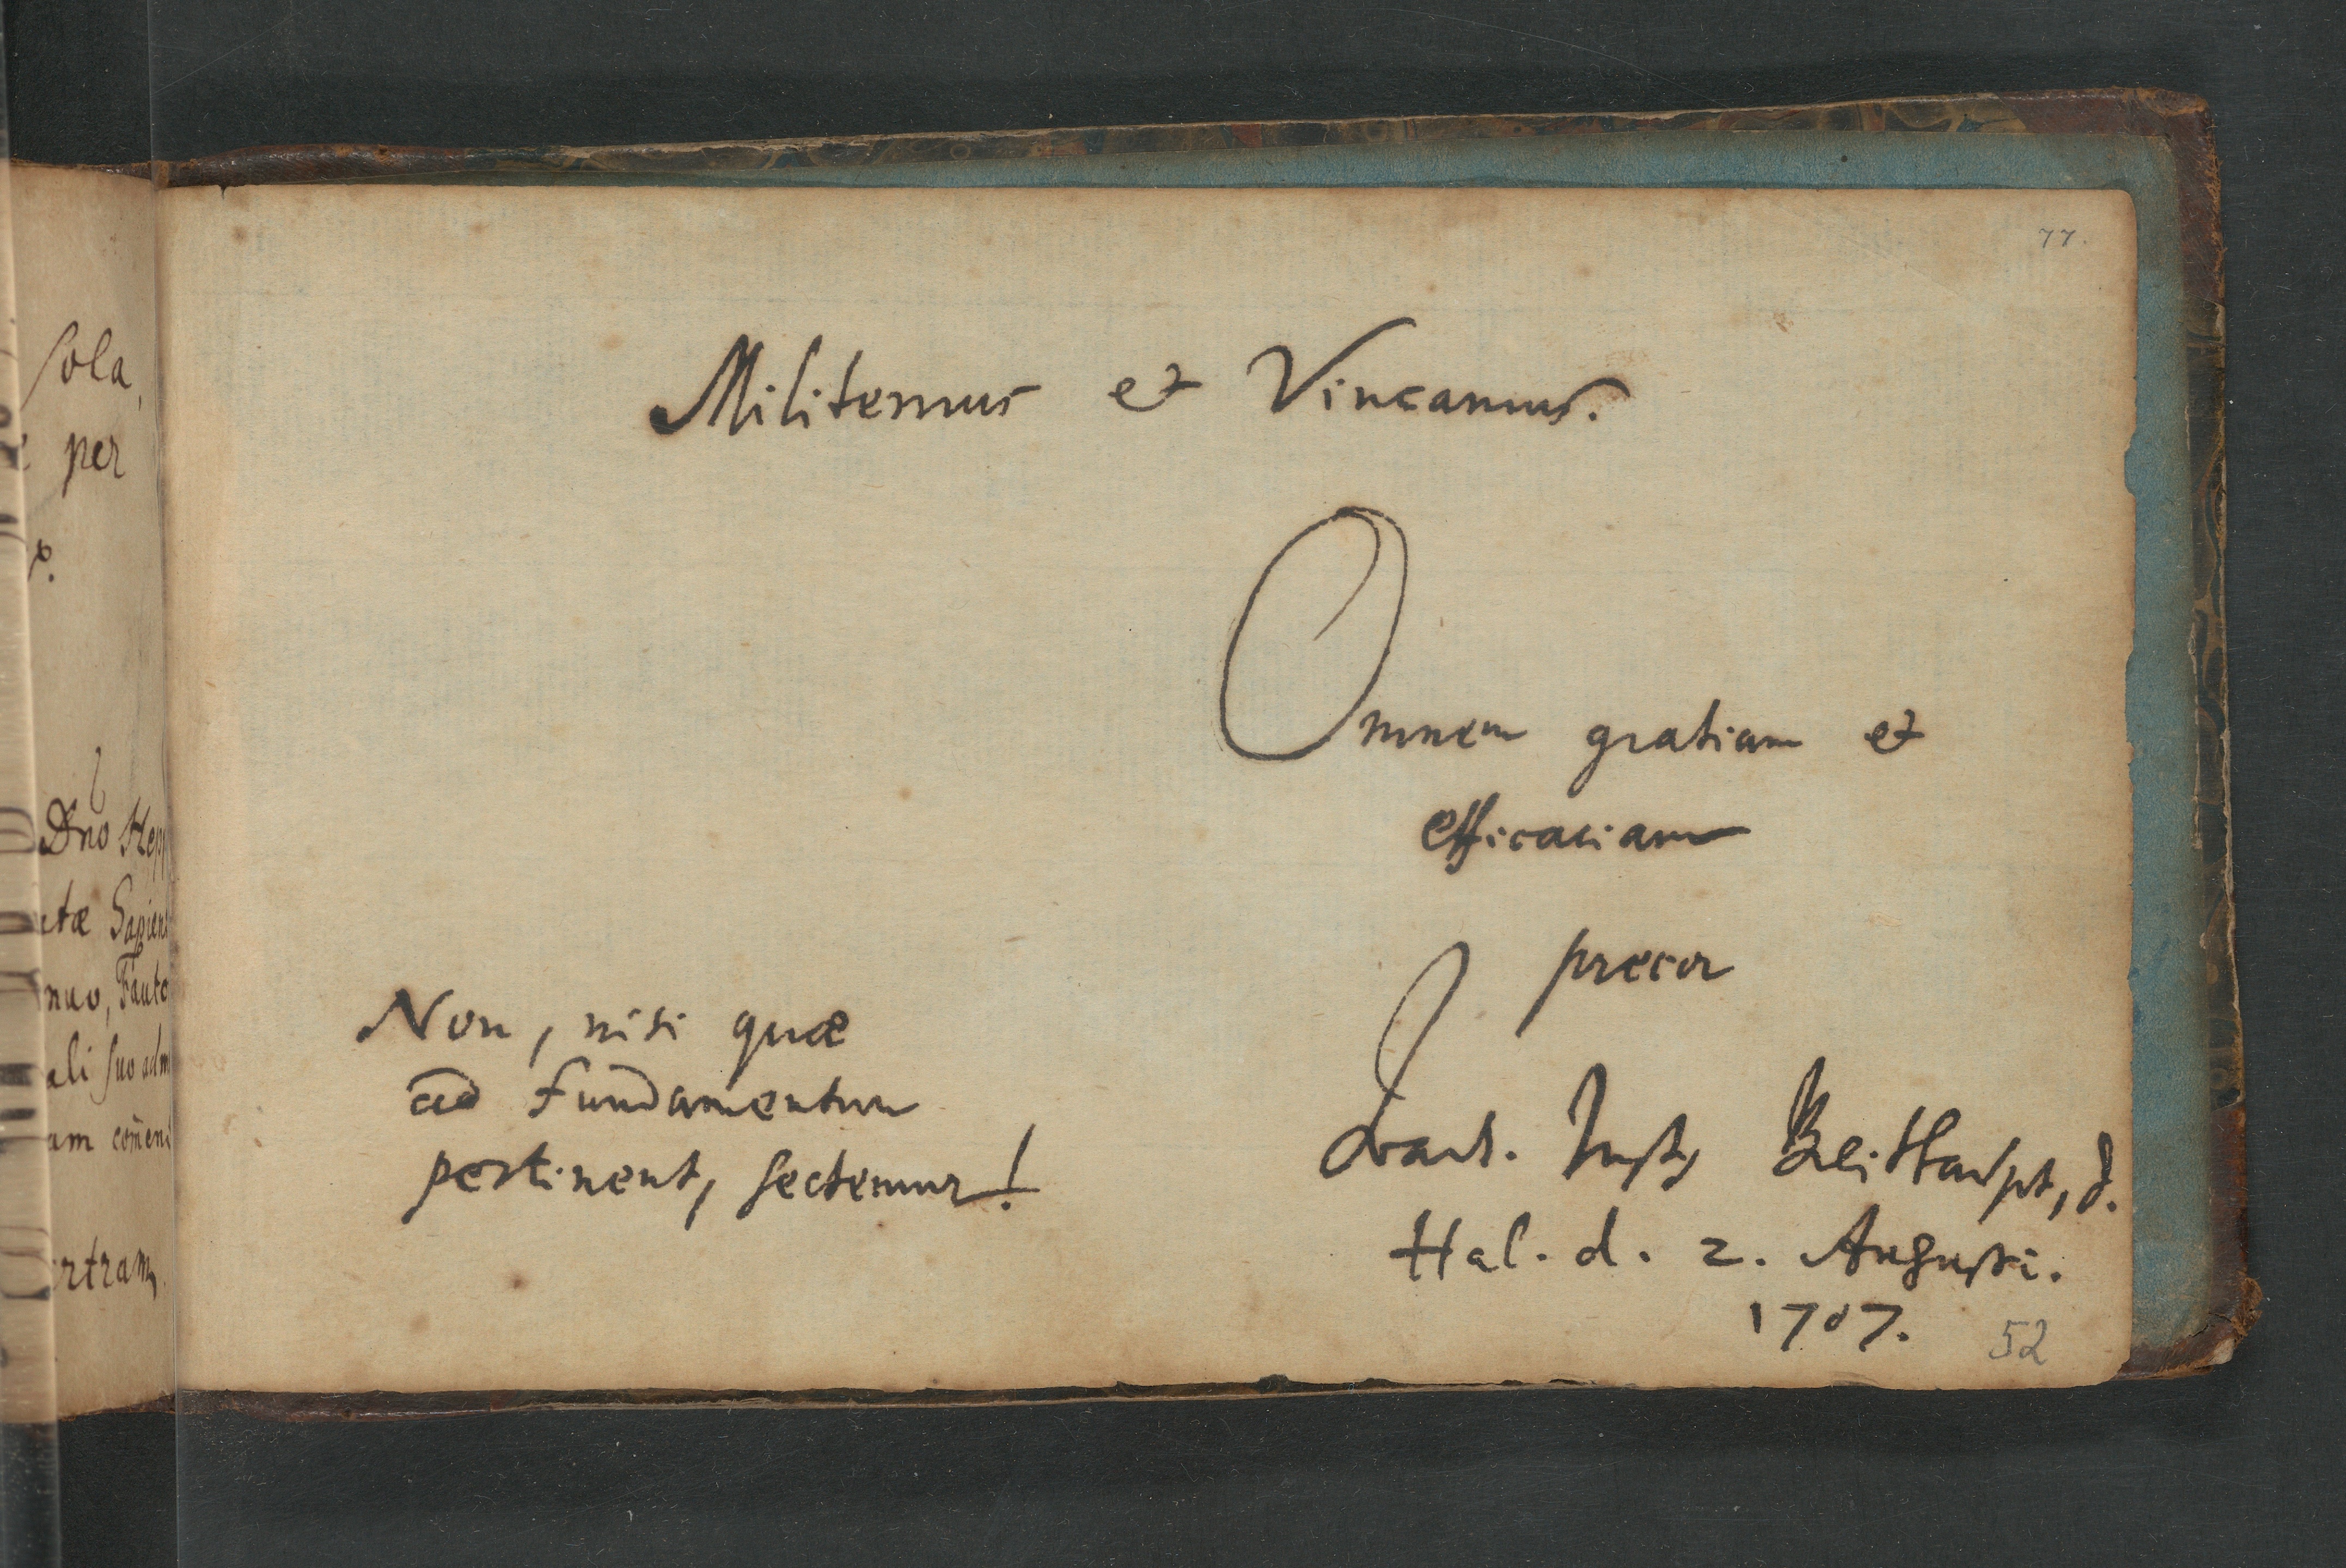 sola,
per
x.
Dno Hepp
tæ Sapien
nuo, Fauto
ali suo adm
am com̄en
ertram,
77.
Militemus et Vincamus.
Omnem gratiam et
efficaciam
precor
Non, nisi quæ
ad Fundamentum
pertinent, sectemur!
Just, Breithaupt, d.
Hal. d. 2. Augusti.
1707.
52